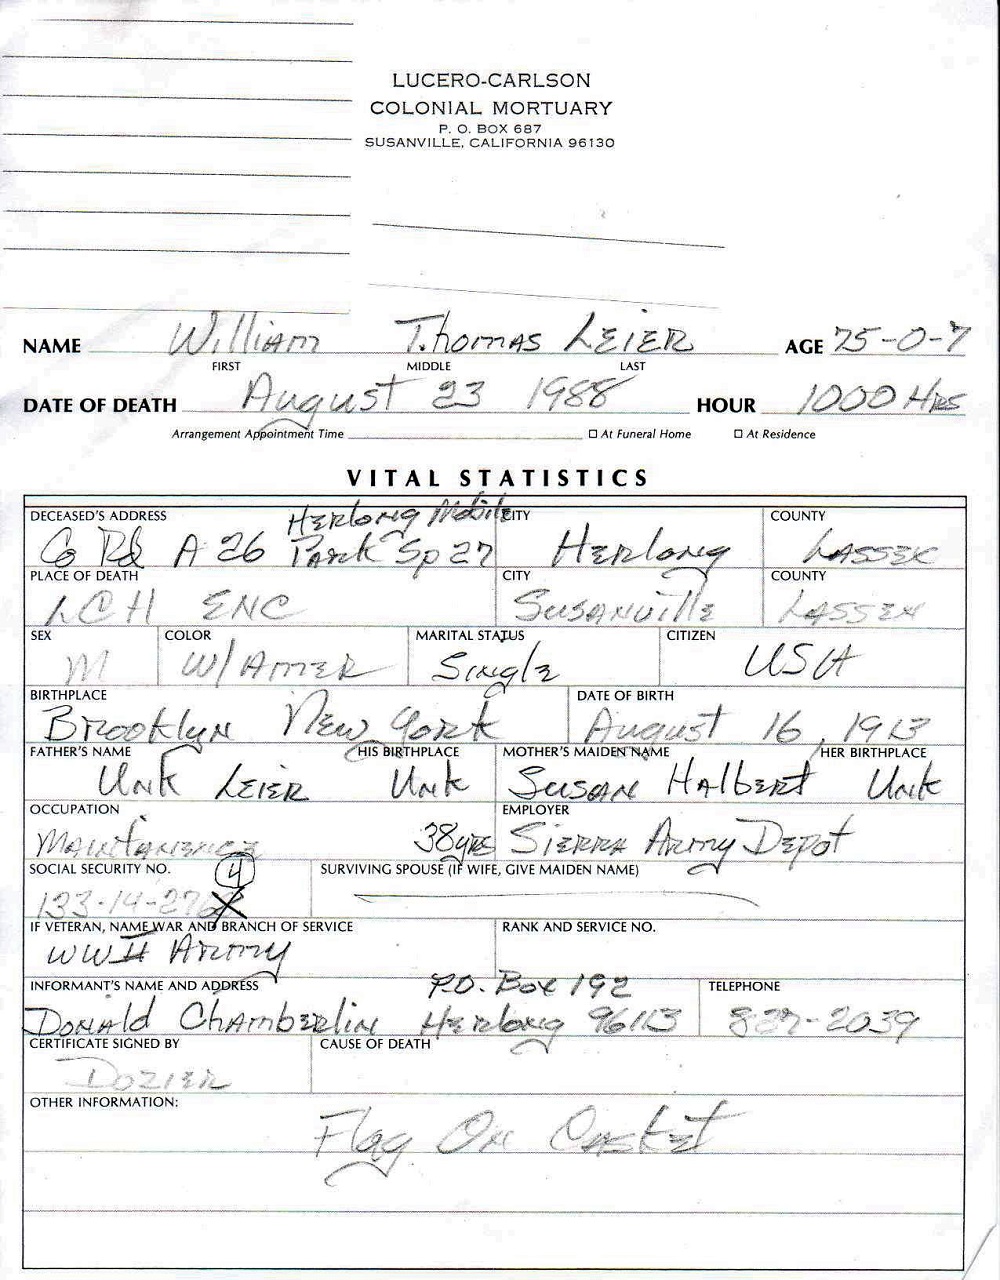 LUCERO-CARLSON
COLONIAL MORTUARY
P. O. BOX 687
SUSANVILLE, CALIFORNIA 96130
NAME William Thomas Leier AGE 75-0-7
FIRST MIDDLE LAST
DATE OF DEATH August 23 1988 HOUR 1000 Hrs
Arrangement Appointment Time ☐ At Funeral Home ☐ At Residence
VITAL STATISTICS
DECEASED'S ADDRESS Herlong Mobile CITY COUNTY
Co Rd A 26 Park Sp 27 Herlong Lassen
PLACE OF DEATH CITY COUNTY
LCH ENC Susanville Lassen
SEX COLOR MARITAL STATUS CITIZEN
M W/Amer Single USA
BIRTHPLACE DATE OF BIRTH
Brooklyn New York August 16, 1913
FATHER'S NAME HIS BIRTHPLACE MOTHER'S MAIDEN NAME HER BIRTHPLACE
Unk Leier Unk Susan Halbert Unk
OCCUPATION EMPLOYER
Maintanence 38yrs Sierra Army Depot
SOCIAL SECURITY NO. 4 SURVIVING SPOUSE (IF WIFE, GIVE MAIDEN NAME)
133-14-276
IF VETERAN, NAME WAR AND BRANCH OF SERVICE RANK AND SERVICE NO.
WWII Army
INFORMANT'S NAME AND ADDRESS P.O. Box 192 TELEPHONE
Donald Chamberlin Herlong 96113 827-2039
CERTIFICATE SIGNED BY CAUSE OF DEATH
Dozier
OTHER INFORMATION:
Flag On Casket